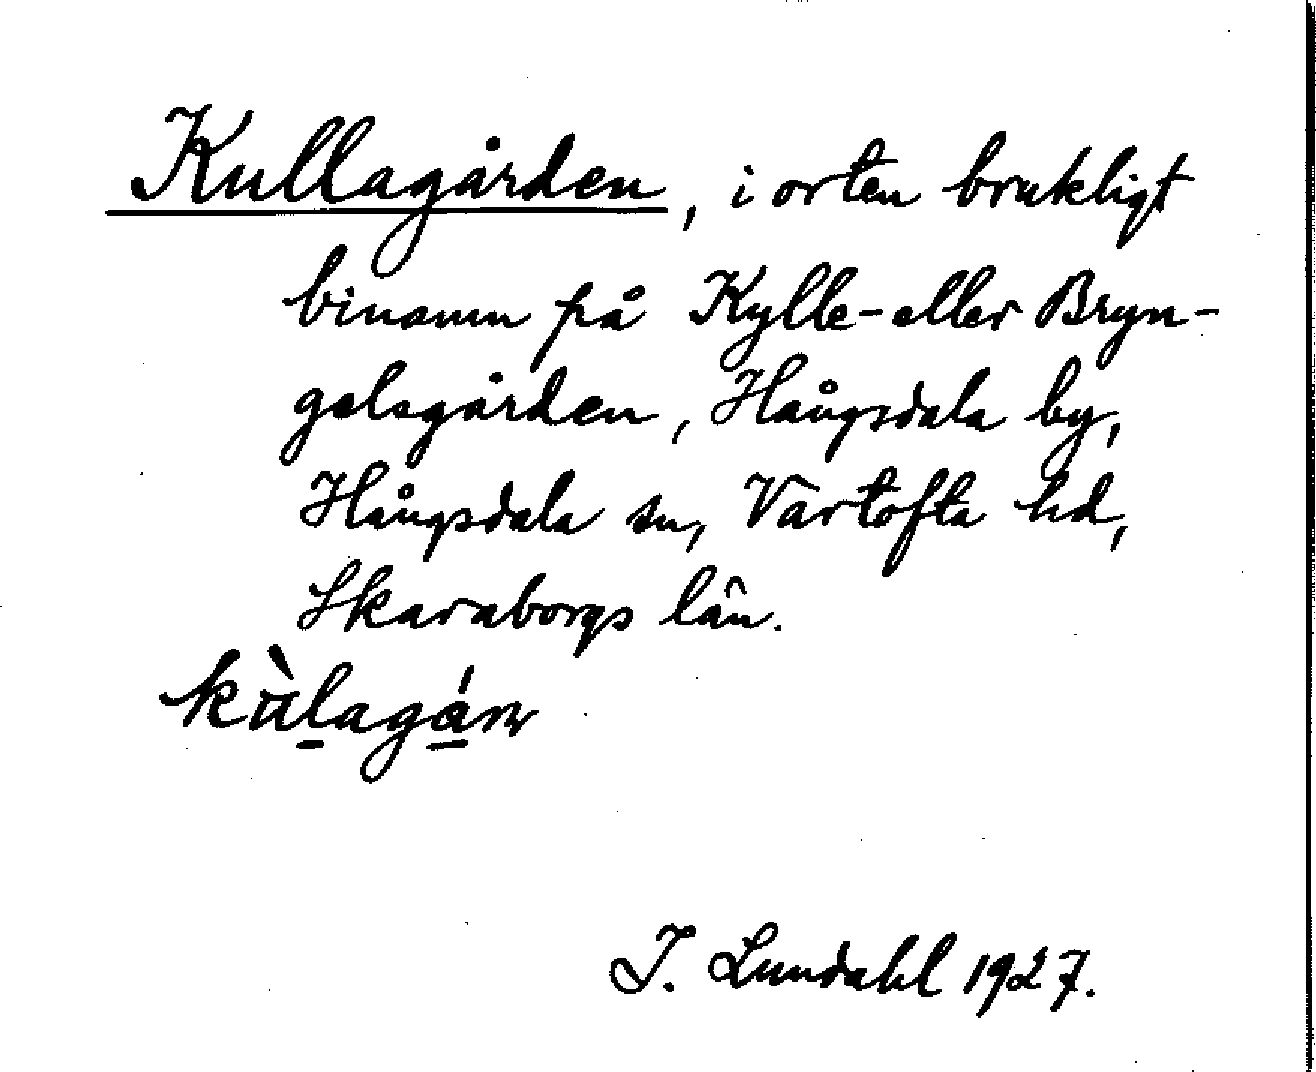 Kullagården, i orten brukligt
binamn på Kylle- eller Bryn-
gelsgården, Hångsdala by,
Hångsdala sn, Vartofta hd,
Skaraborgs län.
I. Lundahl 1927.